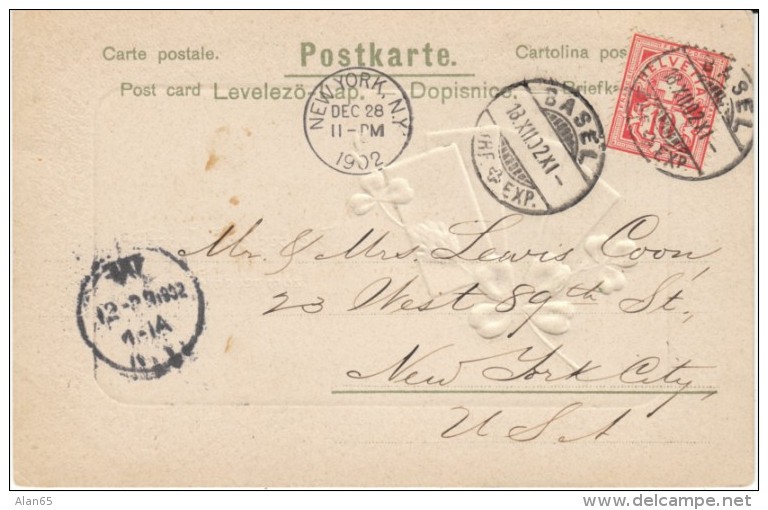 Carte postale. Postkarte. Cartolina pos
Post card Levelező-Lap. Dopisnice. Briefk
NEW YORK, N.Y.
DEC 28
11-PM
1902
BASEL
18.XII.02.XI-
BRF. EXP.
HELVETIA
BASEL
18.XII.02.XI-
EXP.
Mr. & Mrs. Lewis Coon,
23 West 89th St.,
New York City,
U S A
1902
Alan65
http://www.delcampe.net